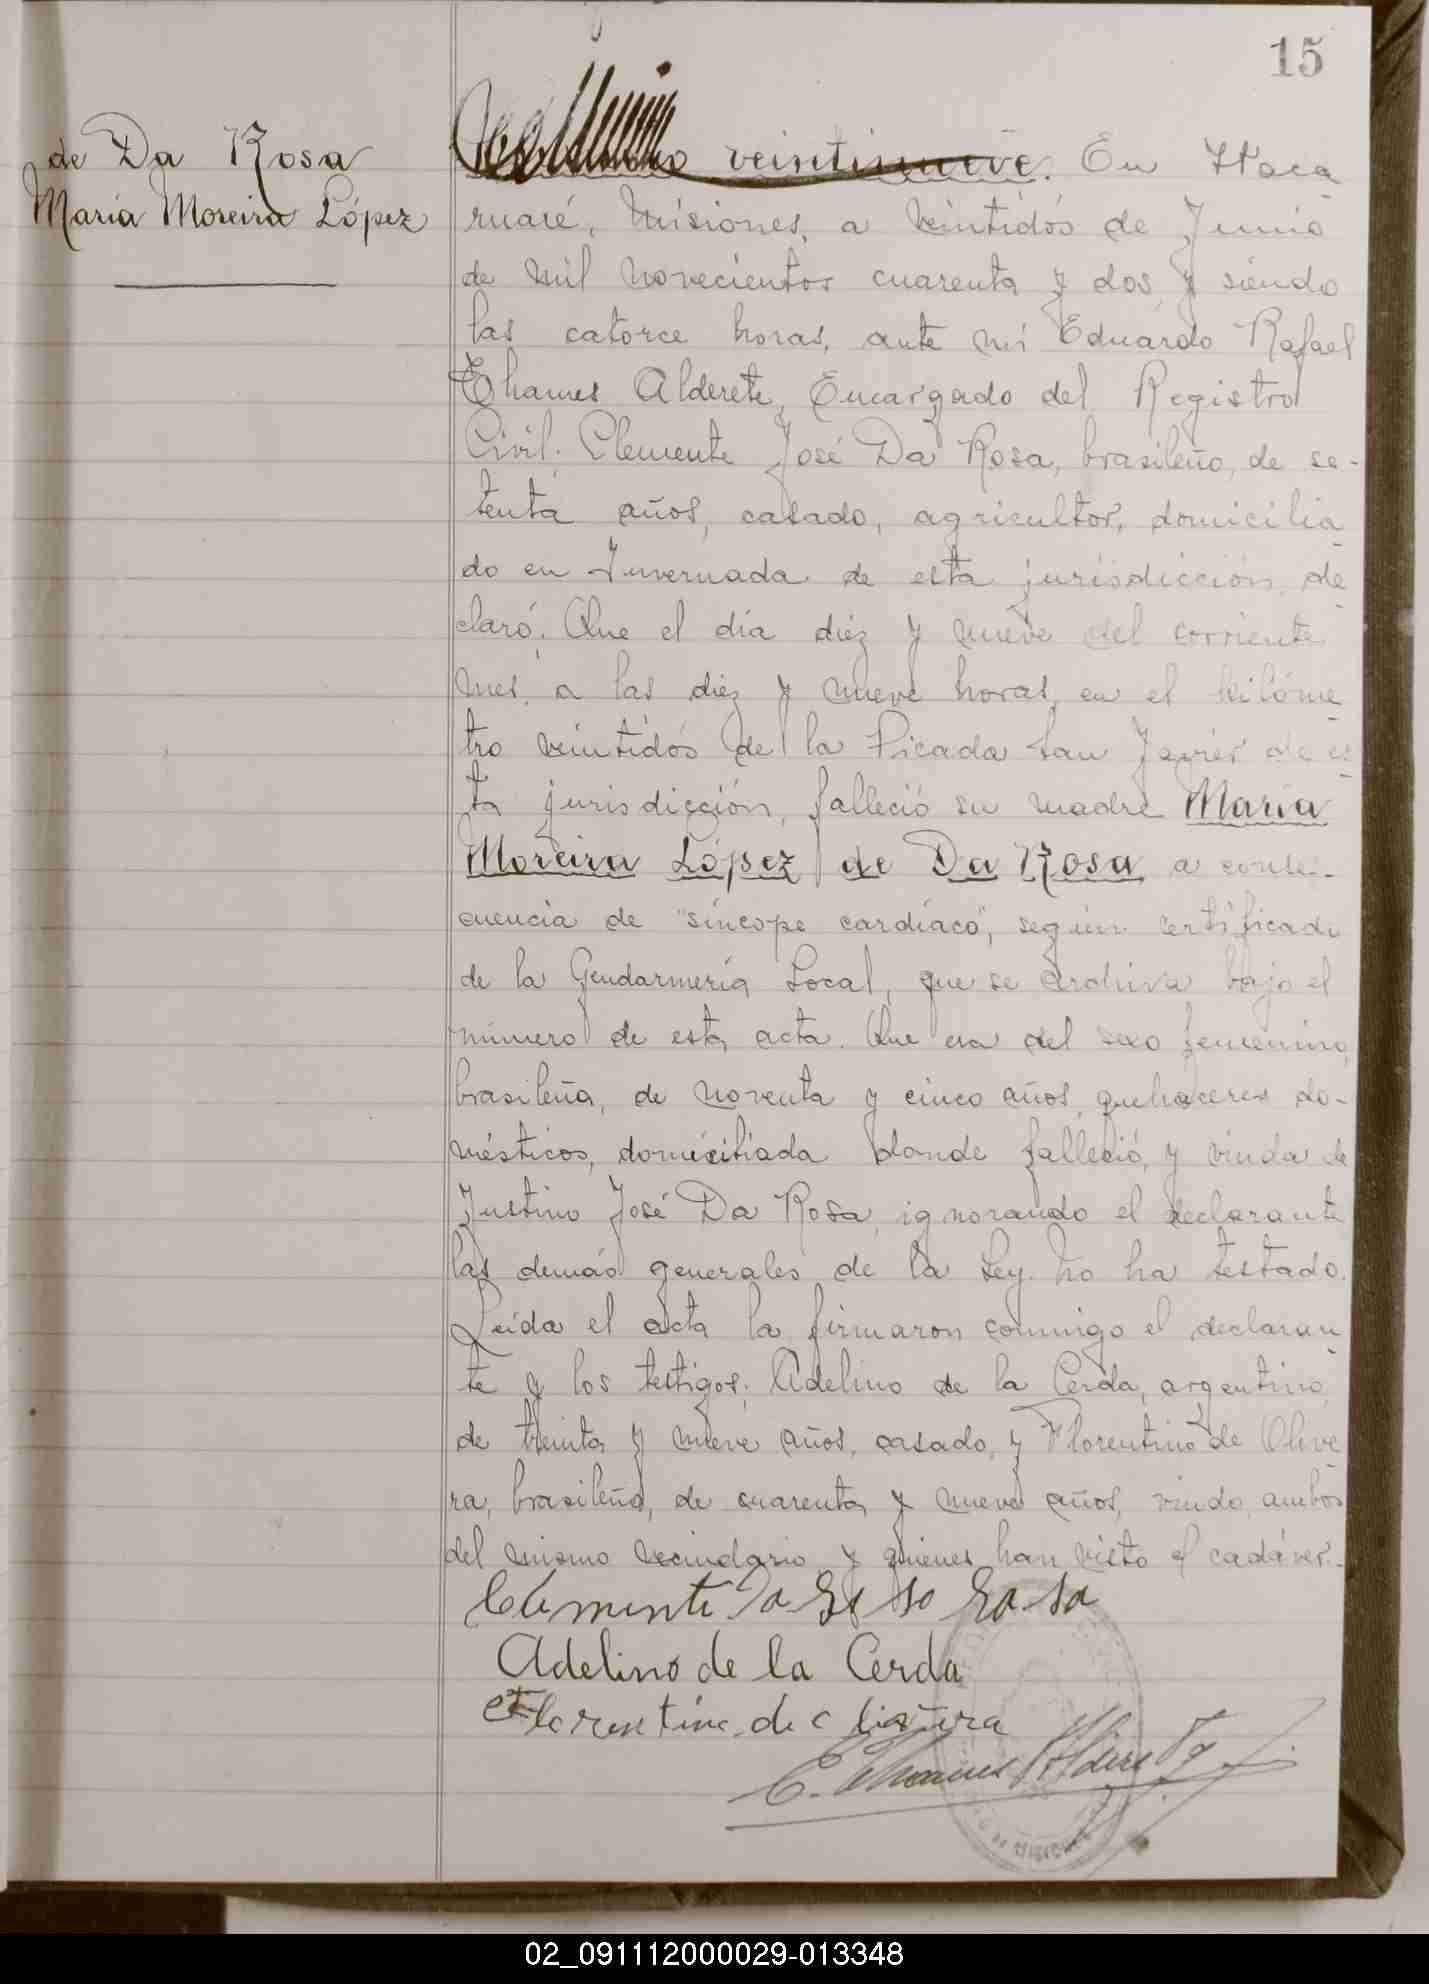 15
de Da Rosa
María Moreira López
veintinueve. En Itaca
ruaré, Misiones, a veintidós de Junio
de mil novecientos cuarenta y dos y siendo
las catorce horas, ante mí Eduardo Rafael
Thames Alderete, Encargado del Registro
Civil: Clemente José Da Rosa, brasileño, de se-
tenta años, casado, agricultor, domicilia
do en Invernada de esta jurisdicción, de
claró: Que el día diez y nueve del corriente
mes, a las diez y nueve horas, en el kilóme
tro veintidós de la Picada San Javier de es
ta jurisdicción, falleció su madre María
Moreira López de Da Rosa a conse-
cuencia de "síncope cardíaco", según certificado
de la Gendarmería Local, que se archiva bajo el
número de esta acta. Que era del sexo femenino,
brasileña, de noventa y cinco años, quehaceres do-
mésticos, domiciliada donde falleció, y viuda de
Justino José Da Rosa, ignorando el declarante
las demás generales de la Ley. No ha testado.
Leída el acta la firmaron conmigo el declaran
te y los testigos: Adelino de la Cerda, argentino,
de treinta y nueve años, casado, y Florentino de Olive
ra, brasileño, de cuarenta y nueve años, viudo, ambos
del mismo vecindario y quienes han visto el cadáver.-
Clemente Rosa
Adelino de la Cerda
Florentino de
E. Thames Alderete
02_091112000029-013348